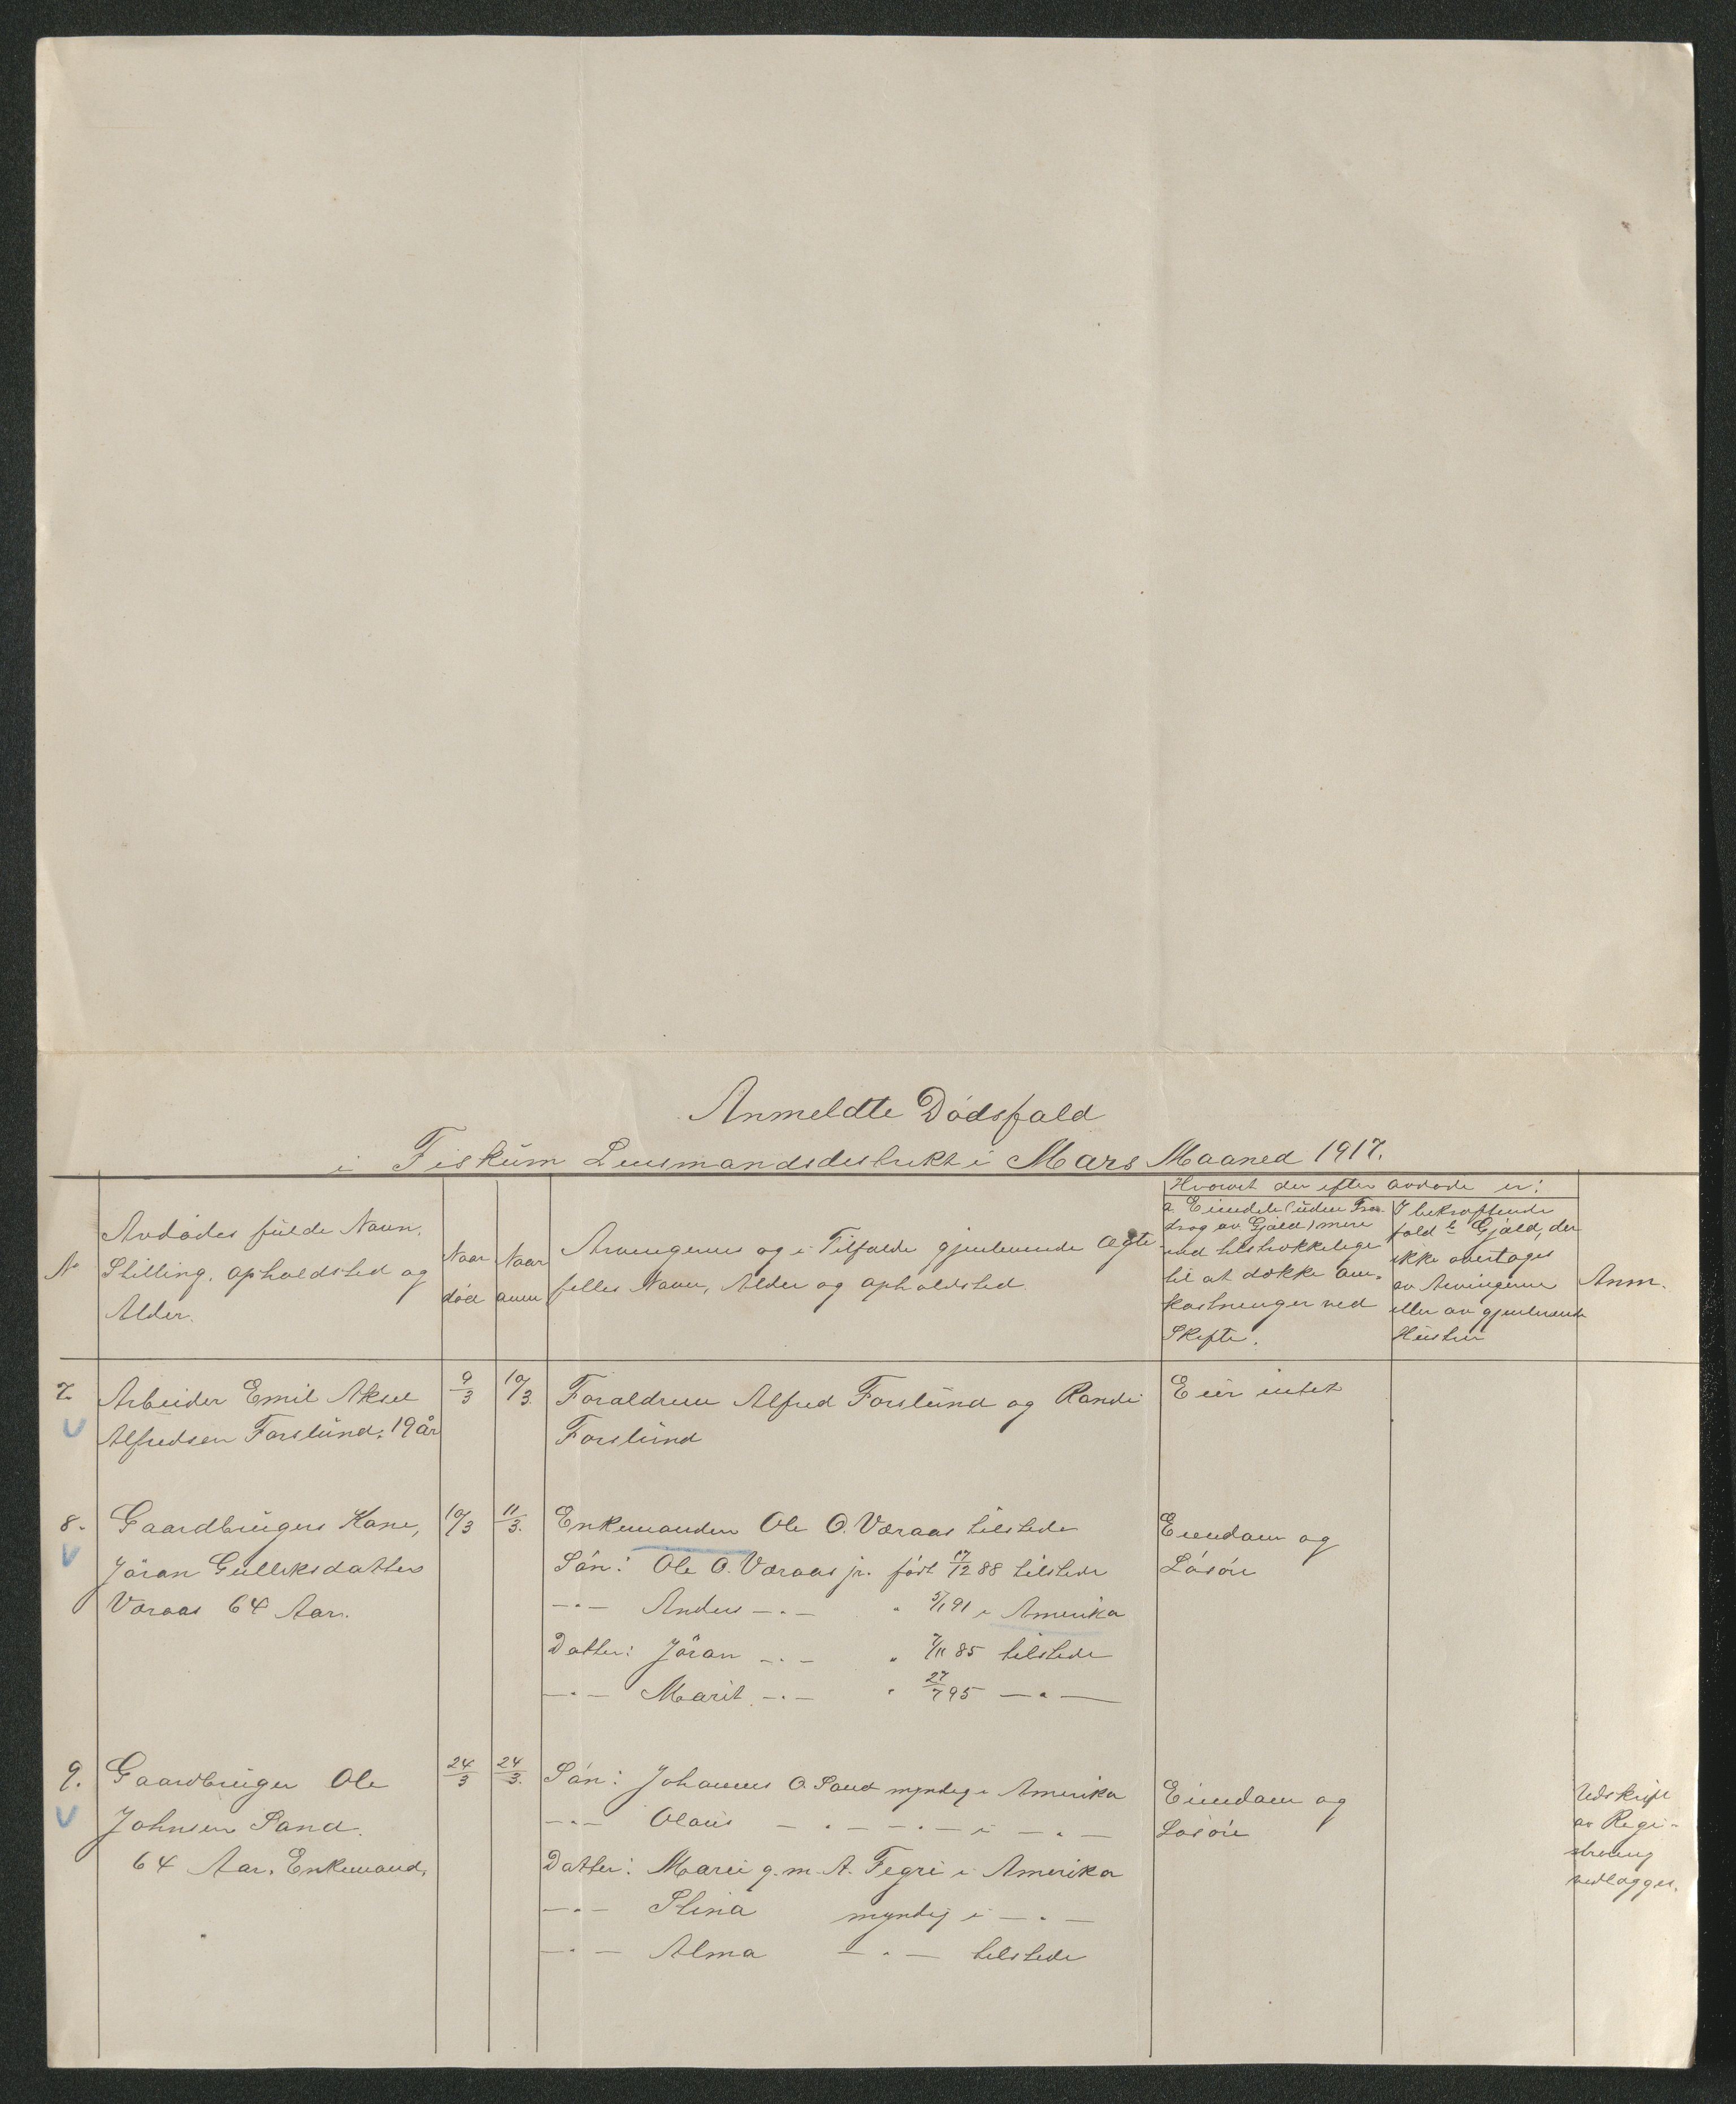 Anmeldte Dødsfald
i Fiskum Lensmandsdistrikt i Mars Maaned 1917.
No
Avdødes fulde Navn,
Stilling, opholdsted og
Alder.
Naar
død
Naar
anm
Arvingernes og i Tilfælde gjenlevende Ægte-
felles Navn, Alder og opholdsted
Hvorvit der efter avdøde er:
a. Eiendele (uden Fra-
drag av Gjæld) mere
end tilstrækkelige
til at dække om-
kostninger ved
Skifte.
I bekræftende
fald b Gjæld, der
ikke overtages
av Arvingerne
eller av gjenlevende
Hustru
Anm.
7.
Arbeider Emil Aksel
Alfredsen Forslund, 19 år
9/3
10/3.
Forældrene Alfred Forslund og Randi
Forslund
Eier intet
8.
Gaardbrugers Kone,
Jöran Gulliksdatter
Væraas 64 Aar.
10/3
11/3.
Enkemanden Ole O. Væraas tilstede
Søn: Ole O. Væraas jr. født 17/12 88 tilstede
—"— Anders —"— " 5/1 91 i Amerika
Datter: Jöran —"— " 7/11 85 tilstede
—"— Marit —"— " 27/7 95 —"—
Eiendom og
Løsøre
9.
Gaardbruger Ole
Johnsen Sand.
64 Aar. Enkemand.
24/3
24/3.
Søn: Johannes O. Sand myndig i Amerika
—"— Olaus —"— —"— i —"—
Datter: Marie g. m. A. Tegri i Amerika
—"— Stina myndig i —"—
—"— Alma —"— tilstede
Eiendom og
Løsøre
Udskrift
av Regi-
strering
vedlægges.